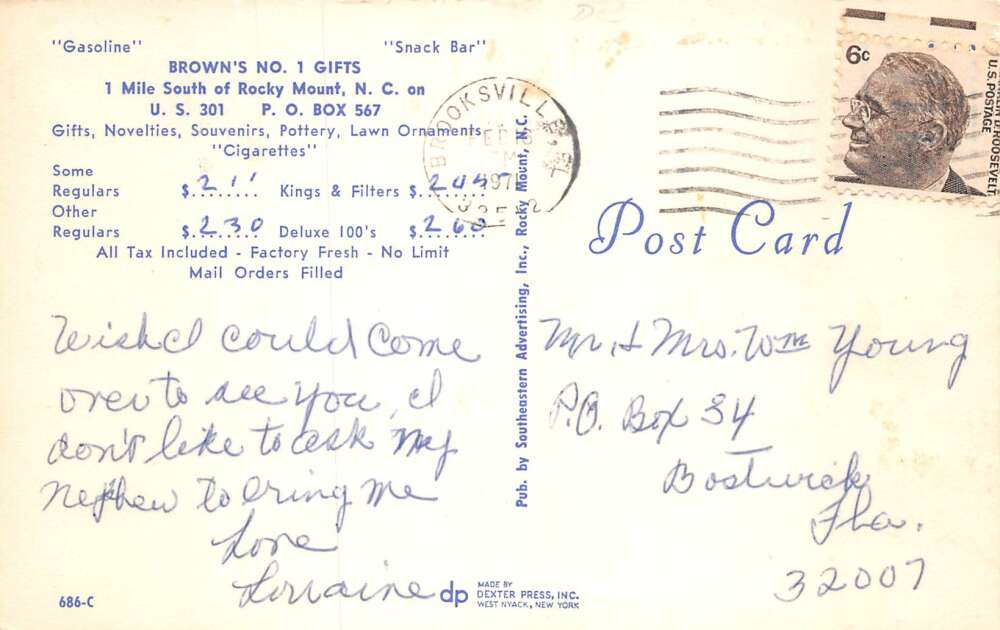 "Gasoline" "Snack Bar"
BROWN'S NO. 1 GIFTS
1 Mile South of Rocky Mount, N. C. on
U. S. 301 P. O. BOX 567
Gifts, Novelties, Souvenirs, Pottery, Lawn Ornaments
"Cigarettes"
Some
Regulars $ Kings & Filters $
Other
Regulars $ 2 30 Deluxe 100's $ 2 60
All Tax Included - Factory Fresh - No Limit
Mail Orders Filled
Wish I could come
over to see you, I
don't like to ask my
Nephew to bring me
Love
Lorraine
686-C
dp MADE BY
DEXTER PRESS, INC.
WEST NYACK, NEW YORK
Pub. by Southeastern Advertising, Inc., Rocky Mount, N.C.
BROOKSVILLE
6c
ROOSEVELT
U.S. POSTAGE
Post Card
Mr. & Mrs. Wm Young
P.O. Box 34
Bostwick
Fla.
32007